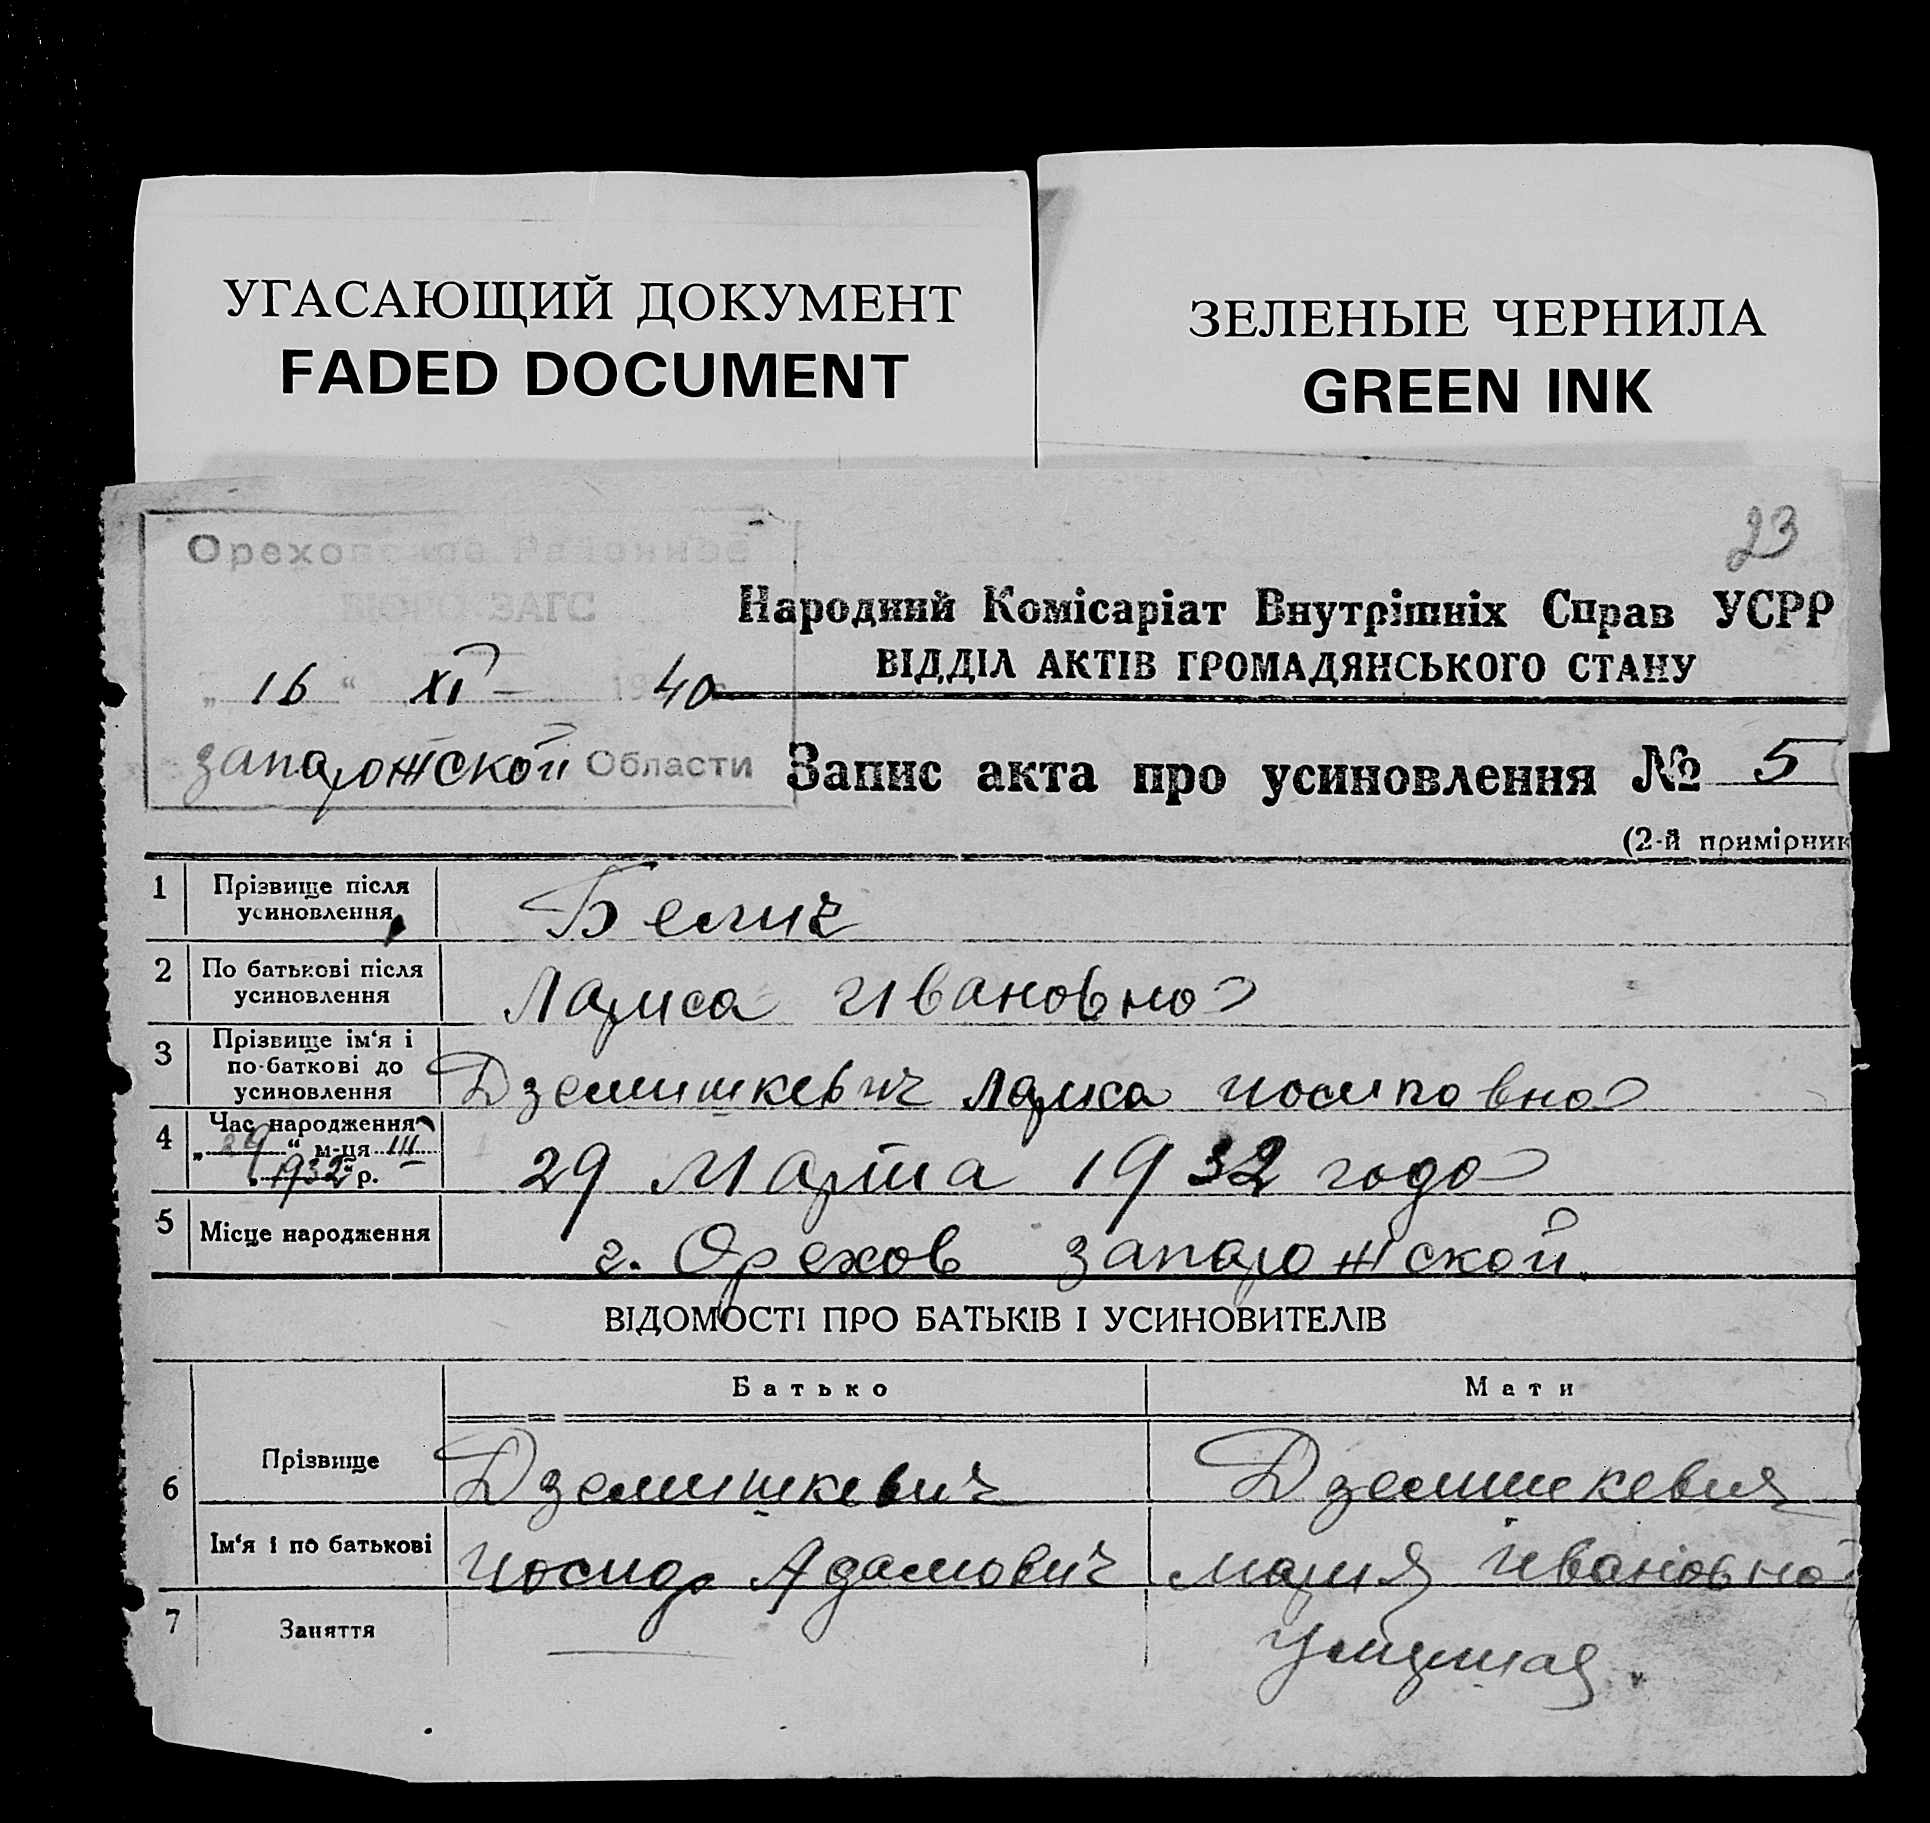 УГАСАЮЩИЙ ДОКУМЕНТ
FADED DOCUMENT
ЗЕЛЕНЫЕ ЧЕРНИЛА
GREEN INK
23
Ореховское Районное
БЮРО ЗАГС
„16“ XI 1940
запарожской Области
Народний Комісаріат Внутрішніх Справ УСРР
ВІДДІЛ АКТІВ ГРОМАДЯНСЬКОГО СТАНУ
Запис акта про усиновлення № 5
(2-й примірник
1 Прізвище після усиновлення Белич
2 По батькові після усиновлення Лариса Ивановна
3 Прізвище ім'я і по-баткові до усиновлення Дземишкевич Лариса Иосиповна
4 Час народження „29“ м-ця III 1932 р. 29 Марта 1932 года
5 Місце народження г. Орехов запарожской
ВІДОМОСТІ ПРО БАТЬКІВ І УСИНОВИТЕЛІВ
Батько Мати
6 Прізвище Дземишкевич Дземишкевич
Ім'я і по батькові Иосип Адамович Мария Ивановна
7 Заняття —